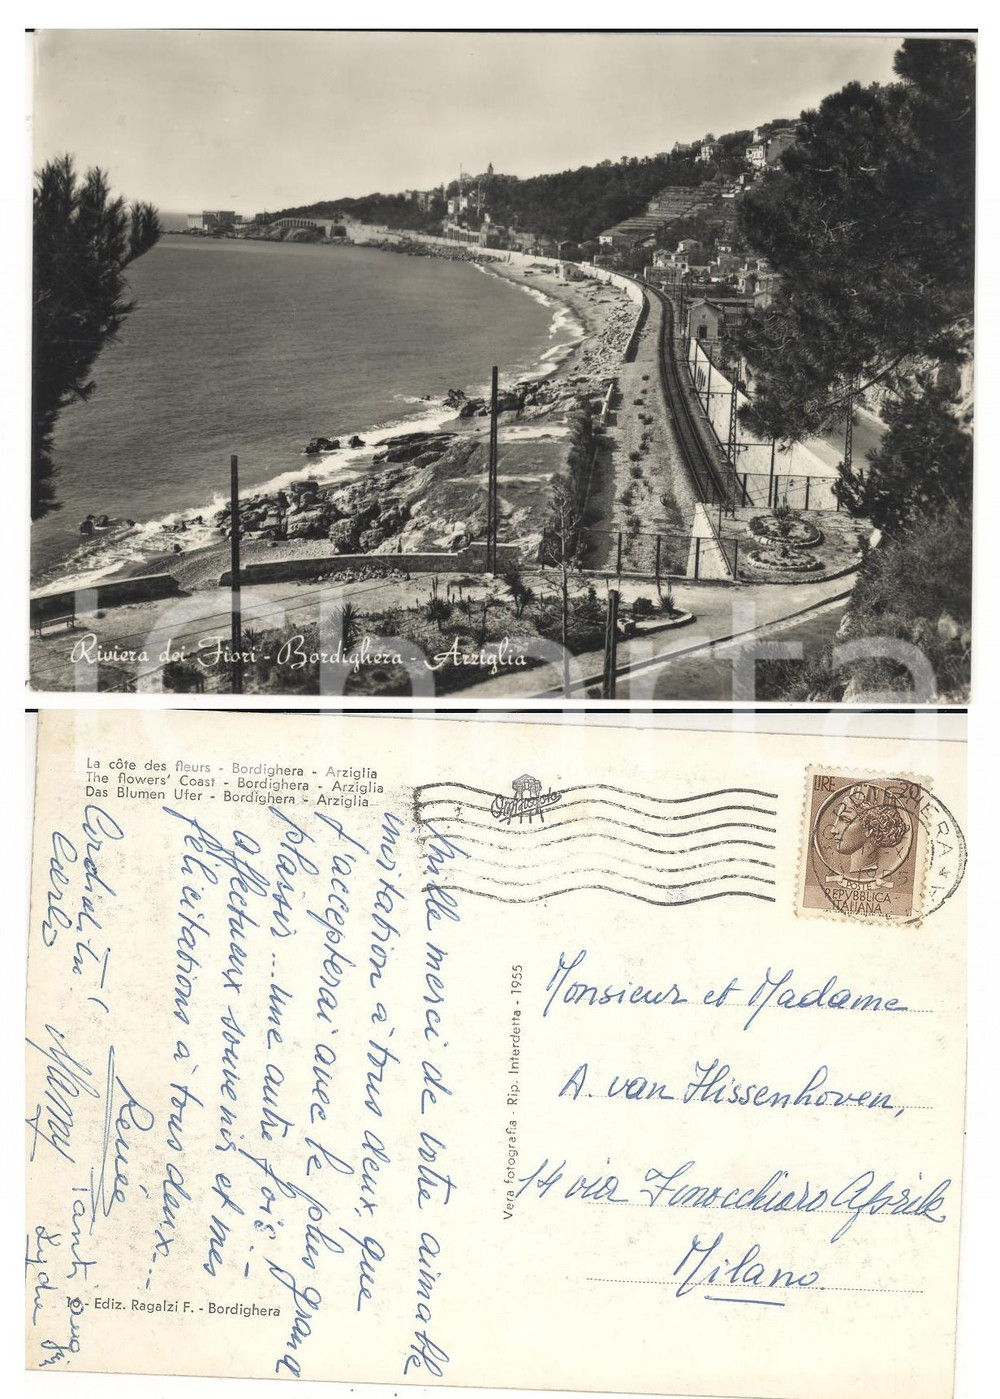 Riviera dei Fiori - Bordighera - Arziglia
icharta
La côte des fleurs - Bordighera - Arziglia
The flowers' Coast - Bordighera - Arziglia
Das Blumen Ufer - Bordighera - Arziglia
LIRE 20
REPVBBLICA
ITALIANA
Mille merci de votre aimable
invitation à tous deux, que
j'accepterai avec le plus grand
plaisir... une autre fois.
Affectueux souvenirs et mes
félicitations à tous deux...
Renée
Cordialità
Carlo
Tanti auguri
Lydia
Vera fotografia - Rip. Interdetta - 1955
Monsieur et Madame
A. van Hissenhoven,
14 via Finocchiaro Aprile
Milano.
16 - Ediz. Ragalzi F. - Bordighera